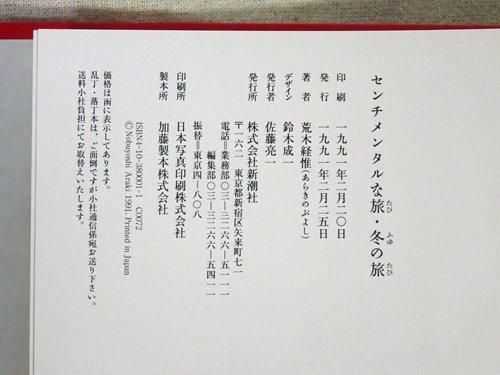 センチメンタルな旅・冬の旅
たび ふゆ たび
印刷 一九九一年二月二〇日
発行 一九九一年二月二五日
著者 荒木経惟(あらきのぶよし)
デザイン 鈴木成一
発行者 佐藤亮一
発行所 株式会社新潮社
〒一六二 東京都新宿区矢来町七一
電話=業務部〇三―三二六六―五一一一
編集部〇三―三二六六―五四一一
振替=東京四―八〇八
印刷所 日本写真印刷株式会社
製本所 加藤製本株式会社
ISBN4-10-380001-1 C0072
©Nobuyoshi Araki 1991. Printed in Japan
価格は函に表示してあります。
乱丁・落丁本は、ご面倒ですが小社通信係宛お送り下さい。
送料小社負担にてお取替えいたします。